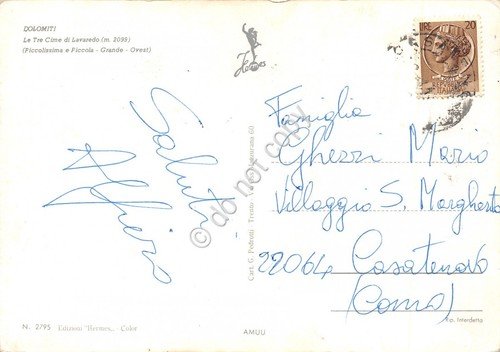 DOLOMITI
Le Tre Cime di Lavaredo (m. 3099)
(Piccolissima e Piccola - Grande - Ovest)
Hermes
LIRE 20
ITALIANA
Saluti
Alfiero
Famiglia
Ghezzi Mario
Villaggio S. Margherita
22064 Casatenovo
(Como)
Cart. G. Pedrotti - Trento - 60
© do not copy
N. 2/95 Edizioni "Hermes" - Color
AMUU
Rip. Interdetta